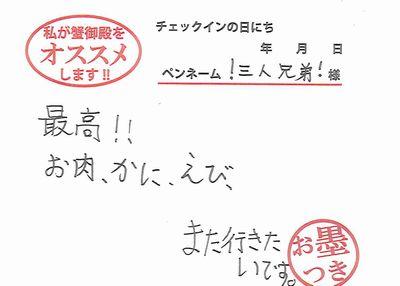 私が蟹御殿を
オススメ
します!!
チェックインの日にち
年 月 日
ペンネーム !三人兄弟! 様
最高!!
お肉、かに、えび、
また行きた
いです。
お墨
つき